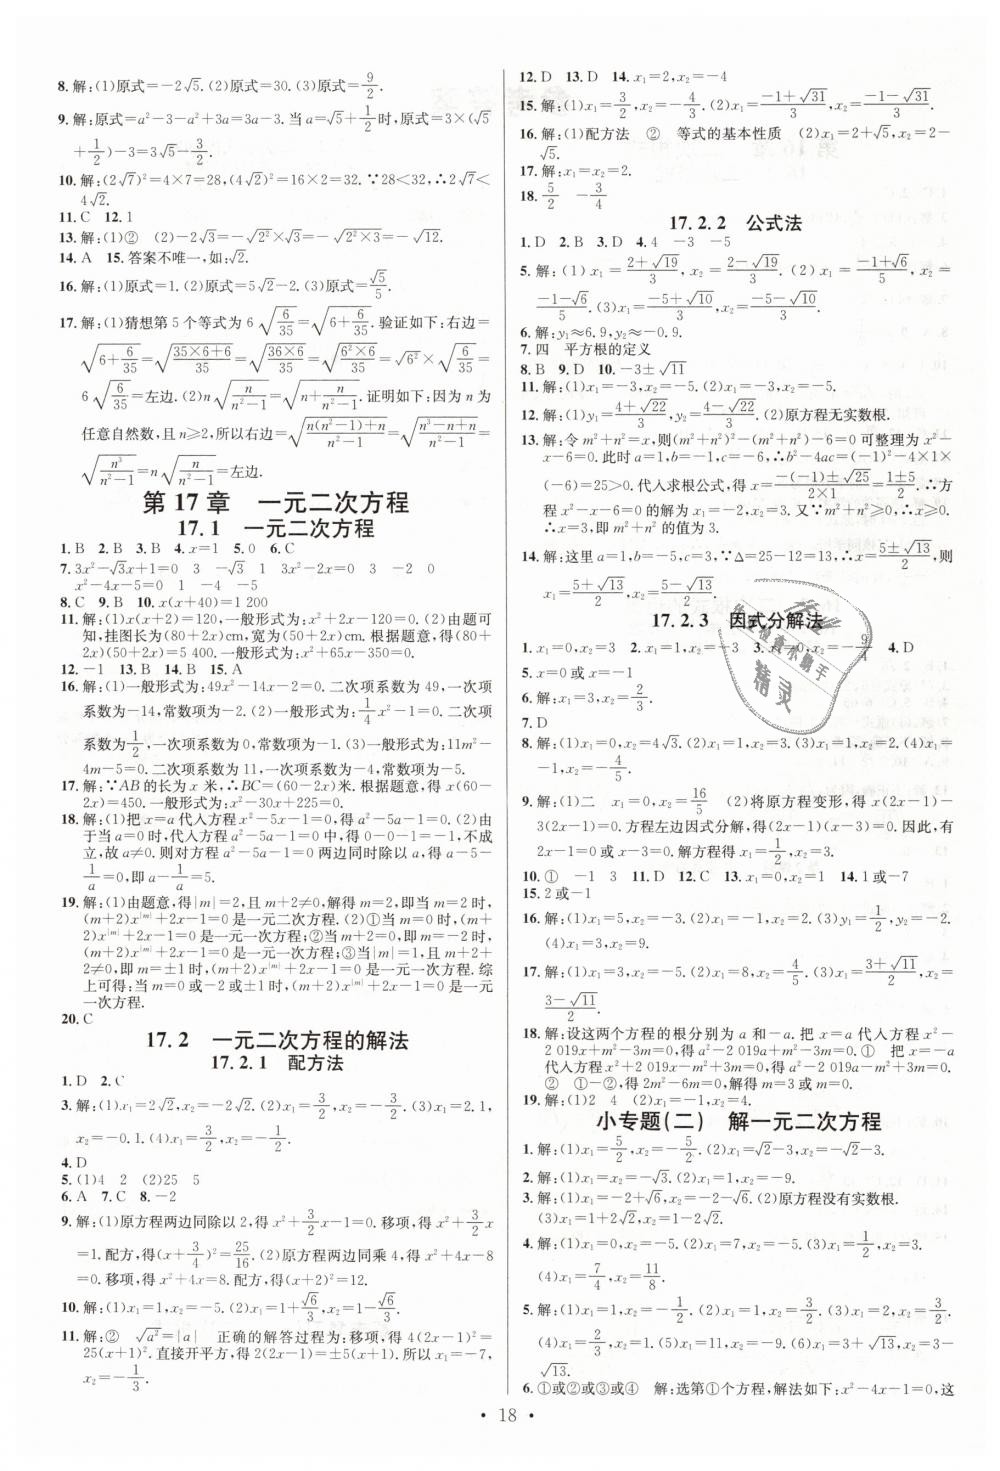 8. 解:(1)原式=-2√5. (2)原式=30. (3)原式=9/2.
9. 解:原式=a²-3-a²+3a=3a-3. 当a=√5+1/2时,原式=3×(√5
+1/2)-3=3√5-3/2.
10. 解:(2√7)²=4×7=28,(4√2)²=16×2=32. ∵28<32,∴2√7<
4√2.
11. C 12. 1
13. 解:(1)② (2)-2√3=-√2²×√3=-√(2²×3)=-√12.
14. A 15. 答案不唯一,如:√2.
16. 解:(1)原式=1. (2)原式=5√2-2. (3)原式=√5/5.
17. 解:(1)猜想第 5 个等式为 6√(6/35)=√(6+6/35). 验证如下:右边=
√(6+6/35)=√((35×6+6)/35)=√((36×6)/35)=√((6²×6)/35)=√6²×√(6/35)=
6√(6/35)=左边. (2)n√(n/(n²-1))=√(n+n/(n²-1)). 证明如下:因为 n 为
任意自然数,且 n≥2,所以右边=√((n(n²-1)+n)/(n²-1))=√((n³-n+n)/(n²-1))=
√(n³/(n²-1))=n√(n/(n²-1))=左边.
第 17 章 一元二次方程
17.1 一元二次方程
1. B 2. B 3. B 4. x=1 5. 0 6. C
7. 3x²-√3x+1=0 3 -√3 1 3x²-2x=0 3 -2 0
x²-4x-5=0 1 -4 -5
8. C 9. B 10. x(x+40)=1 200
11. 解:(1)x(x+2)=120,一般形式为:x²+2x-120=0. (2)由题可
知,挂图长为(80+2x)cm,宽为(50+2x)cm. 根据题意,得(80+
2x)(50+2x)=5 400. 一般形式为:x²+65x-350=0.
12. -1 13. B 14. B 15. A
16. 解:(1)一般形式为:49x²-14x-2=0. 二次项系数为 49,一次项
系数为-14,常数项为-2. (2)一般形式为:1/4x²-1=0. 二次项
系数为1/4,一次项系数为 0,常数项为-1. (3)一般形式为:11m²-
4m-5=0. 二次项系数为 11,一次项系数为-4,常数项为-5.
17. 解:∵AB 的长为 x 米,∴BC=(60-2x)米. 根据题意,得(60-
2x)x=450. 一般形式为:x²-30x+225=0.
18. 解:(1)把 x=a 代入方程 x²-5x-1=0,得 a²-5a-1=0. (2)由
于当 a=0 时,代入方程 a²-5a-1=0 中,得 0-0-1=-1,不成
立,故 a≠0. 则对方程 a²-5a-1=0 两边同时除以 a,得 a-5-
1/a=0,即 a-1/a=5.
19. 解:(1)由题意,得|m|=2,且 m+2≠0,解得 m=2,即当 m=2 时,
(m+2)x^|m|+2x-1=0 是一元二次方程. (2)①当 m=0 时,(m+
2)x^|m|+2x-1=0 是一元一次方程;②当 m+2=0,即 m=-2 时,
(m+2)x^|m|+2x-1=0 是一元一次方程;③当|m|=1,且 m+2+
2≠0,即 m=±1 时,(m+2)x^|m|+2x-1=0 是一元一次方程. 综
上可得:当 m=0 或-2 或±1 时,(m+2)x^|m|+2x-1=0 是一元
一次方程.
20. C
17.2 一元二次方程的解法
17.2.1 配方法
1. D 2. C
3. 解:(1)x₁=2√2,x₂=-2√2. (2)x₁=3/2,x₂=-3/2. (3)x₁=2.1,
x₂=-0.1. (4)x₁=3/2,x₂=-1/2.
4. D
5. (1)4 2 (2)25 5
6. A 7. C 8. -2
9. 解:(1)原方程两边同除以 2,得 x²+3/2x-1=0. 移项,得 x²+3/2x
=1. 配方,得(x+3/4)²=25/16. (2)原方程两边同乘 4,得 x²+4x-8
=0. 移项,得 x²+4x=8. 配方,得(x+2)²=12.
10. 解:(1)x₁=1,x₂=-5. (2)x₁=1+√6/3,x₂=1-√6/3.
11. 解:② √a²=|a| 正确的解答过程为:移项,得 4(2x-1)²=
25(x+1)². 直接开平方,得 2(2x-1)=±5(x+1). 所以 x₁=-7,
x₂=-1/3.
12. D 13. D 14. x₁=2,x₂=-4
15. 解:(1)x₁=3/2,x₂=-1/4. (2)x₁=(-1+√31)/3,x₂=(-1-√31)/3.
16. 解:(1)配方法 ② 等式的基本性质 (2)x₁=2+√5,x₂=2-
√5.
17. 解:x₁=x₂=2.
18. 5/2 -3/4
17.2.2 公式法
1. D 2. B 3. D 4. 4 -3 -5
5. 解:(1)x₁=(2+√19)/3,x₂=(2-√19)/3. (2)x₁=(-1+√6)/5,x₂=
(-1-√6)/5. (3)x₁=(-5+√10)/3,x₂=(-5-√10)/3.
6. 解:y₁≈6.9,y₂≈-0.9.
7. 四 平方根的定义
8. B 9. D 10. -3±√11
11. 解:(1)x₁=-3,x₂=-5. (2)x₁=-3,x₂=-5.
12. 解:(1)y₁=(4+√22)/3,y₂=(4-√22)/3. (2)原方程无实数根.
13. 解:令 m²+n²=x,则(m²+n²)²-(m²+n²)-6=0 可整理为 x²-
x-6=0. 此时 a=1,b=-1,c=-6,∴b²-4ac=(-1)²-4×1×
(-6)=25>0. 代入求根公式,得 x=(-(-1)±√25)/(2×1)=(1±5)/2. ∴方
程 x²-x-6=0 的解为 x₁=-2,x₂=3. 又∵m²+n²≥0,∴x≥0.
∴x=3,即 m²+n² 的值为 3.
14. 解:这里 a=1,b=-5,c=3,∵Δ=25-12=13,∴x=(5±√13)/2,则
x₁=(5+√13)/2,x₂=(5-√13)/2.
17.2.3 因式分解法
1. x₁=0,x₂=3 2. x₁=1,x₂=-3 3. x₁=0,x₂=-9/4 4. D
5. x=0 或 x=-1
6. 解:x₁=-2/3,x₂=2/3.
7. D
8. 解:(1)x₁=0,x₂=4√3. (2)x₁=x₂=1. (3)x₁=1,x₂=2. (4)x₁=
-1,x₂=-4/5.
9. 解:(1)二 x₁=0,x₂=16/5 (2)将原方程变形,得 2x(x-3)-
3(2x-1)=0. 方程左边因式分解,得(2x-1)(x-3)=0. 因此,有
2x-1=0 或 x-3=0. 解方程得 x₁=1/2,x₂=3.
10. ① -1 3 11. D 12. C 13. x₁=0,x₂=1 14. 1 或-7
15. 2 或-1
16. 解:(1)x₁=5,x₂=-3. (2)x₁=x₂=-1. (3)y₁=1/2,y₂=-2.
(4)x₁=3,x₂=9.
17. 解:(1)x₁=-5,x₂=-9. (2)x₁=8,x₂=4/5. (3)x₁=(3+√11)/2,x₂=
(3-√11)/2.
18. 解:设这两个方程的根分别为 a 和-a. 把 x=a 代入方程 x²-
2 019x+m²-3m=0,得 a²-2 019a+m²-3m=0. ① 把 x=-a
代入方程 x²+2 019x-3m=0,得 a²-2 019a-3m=0.
② ①-②,得 2m²-6m=0,解得 m=3 或 m=0.
19. 解:(1)2 4 (2)x₁=-1,x₂=4.
小专题(二) 解一元二次方程
1. 解:(1)x₁=5/2,x₂=-5/2. (2)x₁=√2-3,x₂=-√2-3.
2. 解:(1)x₁=x₂=-√3. (2)x₁=1,x₂=-9.
3. 解:(1)x₁=-2+√6,x₂=-2-√6. (2)原方程没有实数根.
(3)x₁=1+2√2,x₂=1-2√2.
4. 解:(1)x₁=0,x₂=7. (2)x₁=1,x₂=-5. (3)x₁=1/2,x₂=3.
(4)x₁=7/4,x₂=11/8.
5. 解:(1)x₁=1,x₂=-1/2. (2)x₁=1,x₂=2. (3)x₁=3/2,x₂=3/2.
(4)x₁=2/3,x₂=-1. (5)x₁=11,x₂=-9. (6)x₁=3+√13,x₂=3-
√13.
6. ①或②或③或④ 解:选第①个方程,解法如下:x²-4x-1=0,这
• 18 •
精灵